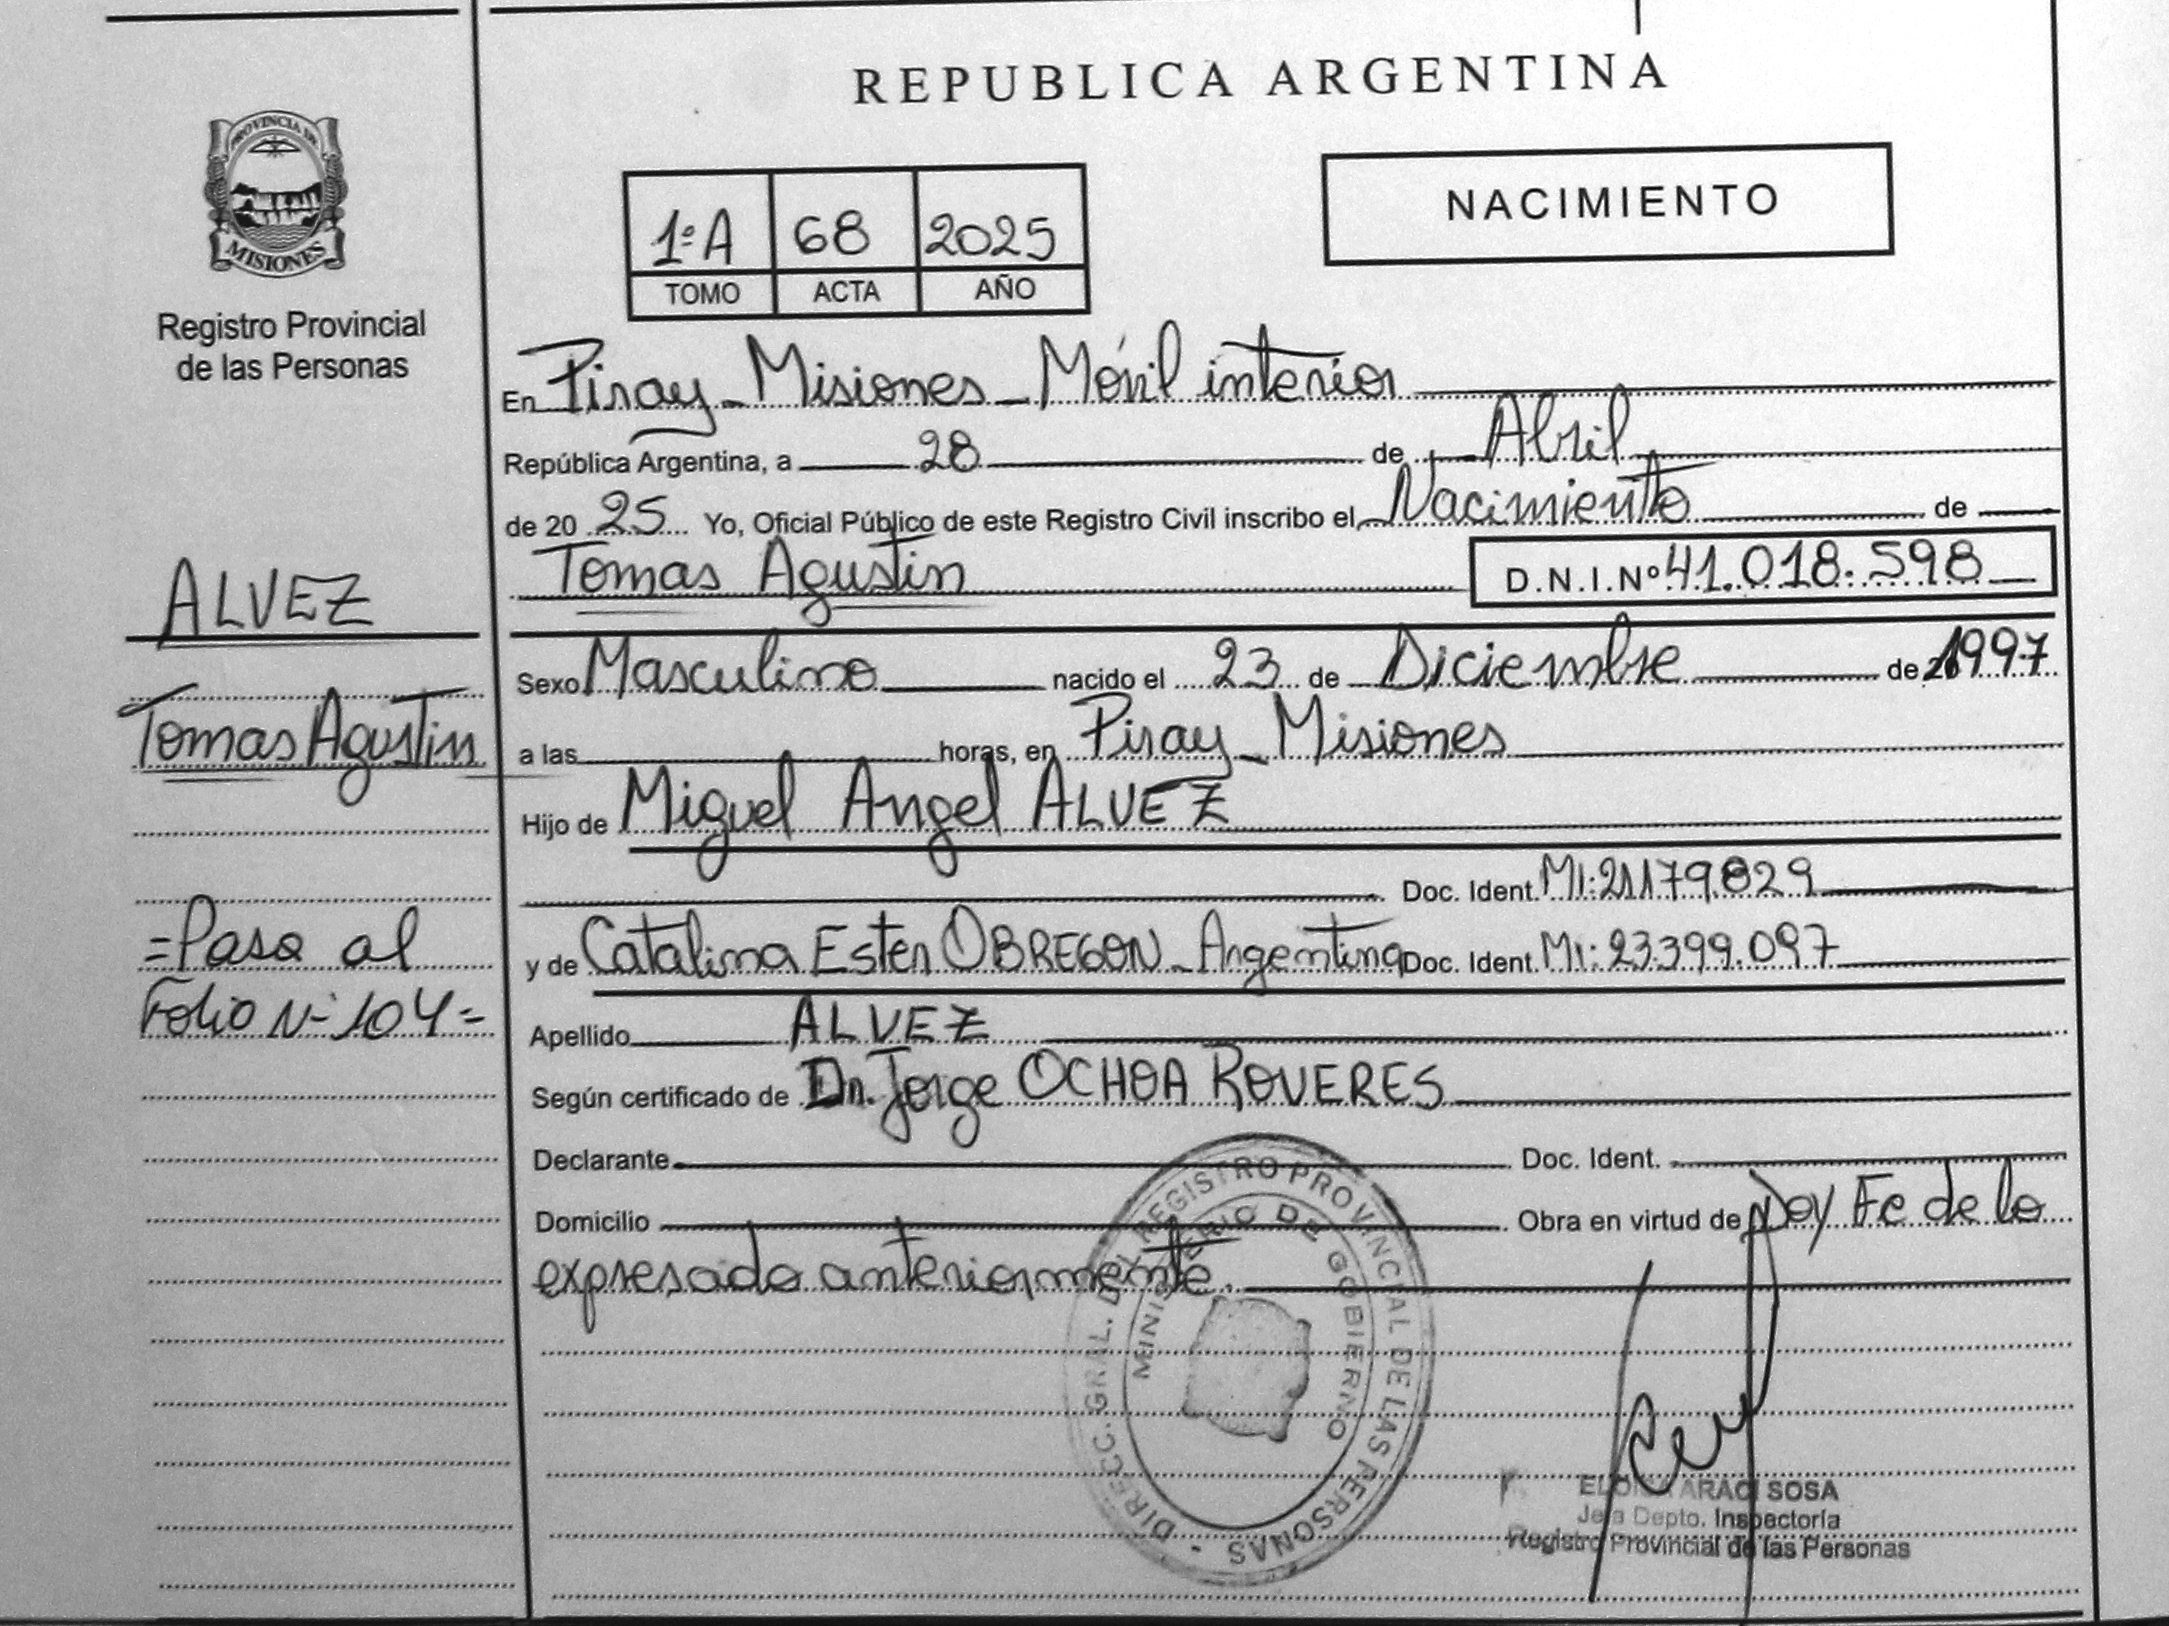 REPUBLICA ARGENTINA
PROVINCIA DE
MISIONES
Registro Provincial
de las Personas
1ºA 68 2025
TOMO ACTA AÑO
NACIMIENTO
En Piray - Misiones - Móvil interior
República Argentina, a 28 de Abril
de 2025 Yo, Oficial Público de este Registro Civil inscribo el Nacimiento de
Tomas Agustin D.N.I.Nº 41.018.598
ALVEZ
Sexo Masculino nacido el 23 de Diciembre de 1997
Tomas Agustin
a las horas, en Piray - Misiones
Hijo de Miguel Angel ALVEZ
Doc. Ident. MI: 21179.829
y de Catalina Ester OBREGON - Argentina Doc. Ident. MI: 23.399.097
=Pasa al
Folio Nº 104=
Apellido ALVEZ
Según certificado de Dr. Jorge OCHOA ROVERES
Declarante Doc. Ident.
Domicilio Obra en virtud de Doy Fe de lo
expresado anteriormente.
DIRECC. GRAL. DEL REGISTRO PROVINCIAL DE LAS PERSONAS
MINISTERIO DE GOBIERNO
ARACI SOSA
Jefa Depto. Inspectoría
Registro Provincial de las Personas